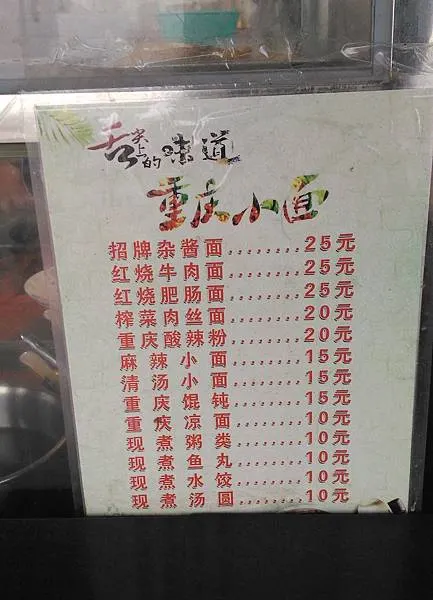 舌尖上的味道
重庆小面
招牌杂酱面.........25元
红烧牛肉面.........25元
红烧肥肠面.........25元
榨菜肉丝面.........20元
重庆酸辣粉.........20元
麻辣小面.........15元
清汤小面.........15元
重庆馄饨.........15元
重庆凉面.........10元
现煮粥类.........10元
现煮鱼丸.........10元
现煮水饺.........10元
现煮汤圆.........10元